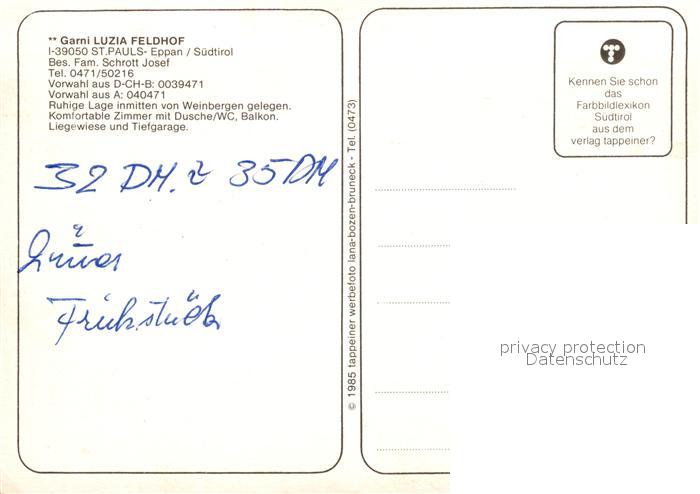 ** Garni LUZIA FELDHOF
I-39050 ST.PAULS- Eppan / Südtirol
Bes. Fam. Schrott Josef
Tel. 0471/50216
Vorwahl aus D-CH-B: 0039471
Vorwahl aus A: 040471
Ruhige Lage inmitten von Weinbergen gelegen.
Komfortable Zimmer mit Dusche/WC, Balkon.
Liegewiese und Tiefgarage.
32 DM. 35 DM
Frühstück
© 1985 tappeiner werbefoto lana-bozen-bruneck - Tel. (0473)
Kennen Sie schon
das
Farbbildlexikon
Südtirol
aus dem
verlag tappeiner?
privacy protection
Datenschutz